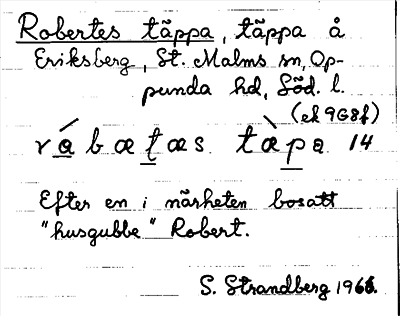 Robertes täppa, täppa å
Eriksberg, St. Malms sn, Op-
punda hd, Söd. l.
(ek 9G8f)
rabætæs tàpa 14
Efter en i närheten bosatt
"husgubbe" Robert.
S. Strandberg 1966.